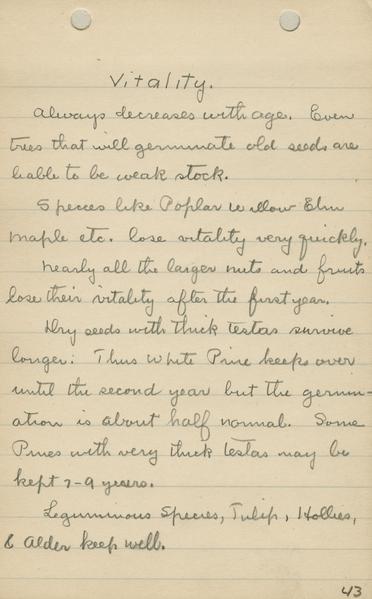 Vitality.
Always decreases with age. Even
trees that will germinate old seeds are
liable to be weak stock.
Species like Poplar Willow Elm
Maple etc. lose vitality very quickly.
Nearly all the larger nuts and fruits
lose their vitality after the first year.
Dry seeds with thick testas survive
longer: Thus White Pine keeps over
until the second year but the germin-
ation is about half normal. Some
Pines with very thick testas may be
kept 7-9 years.
Leguminous Species, Tulip, Hollies,
& Alder keep well.
43